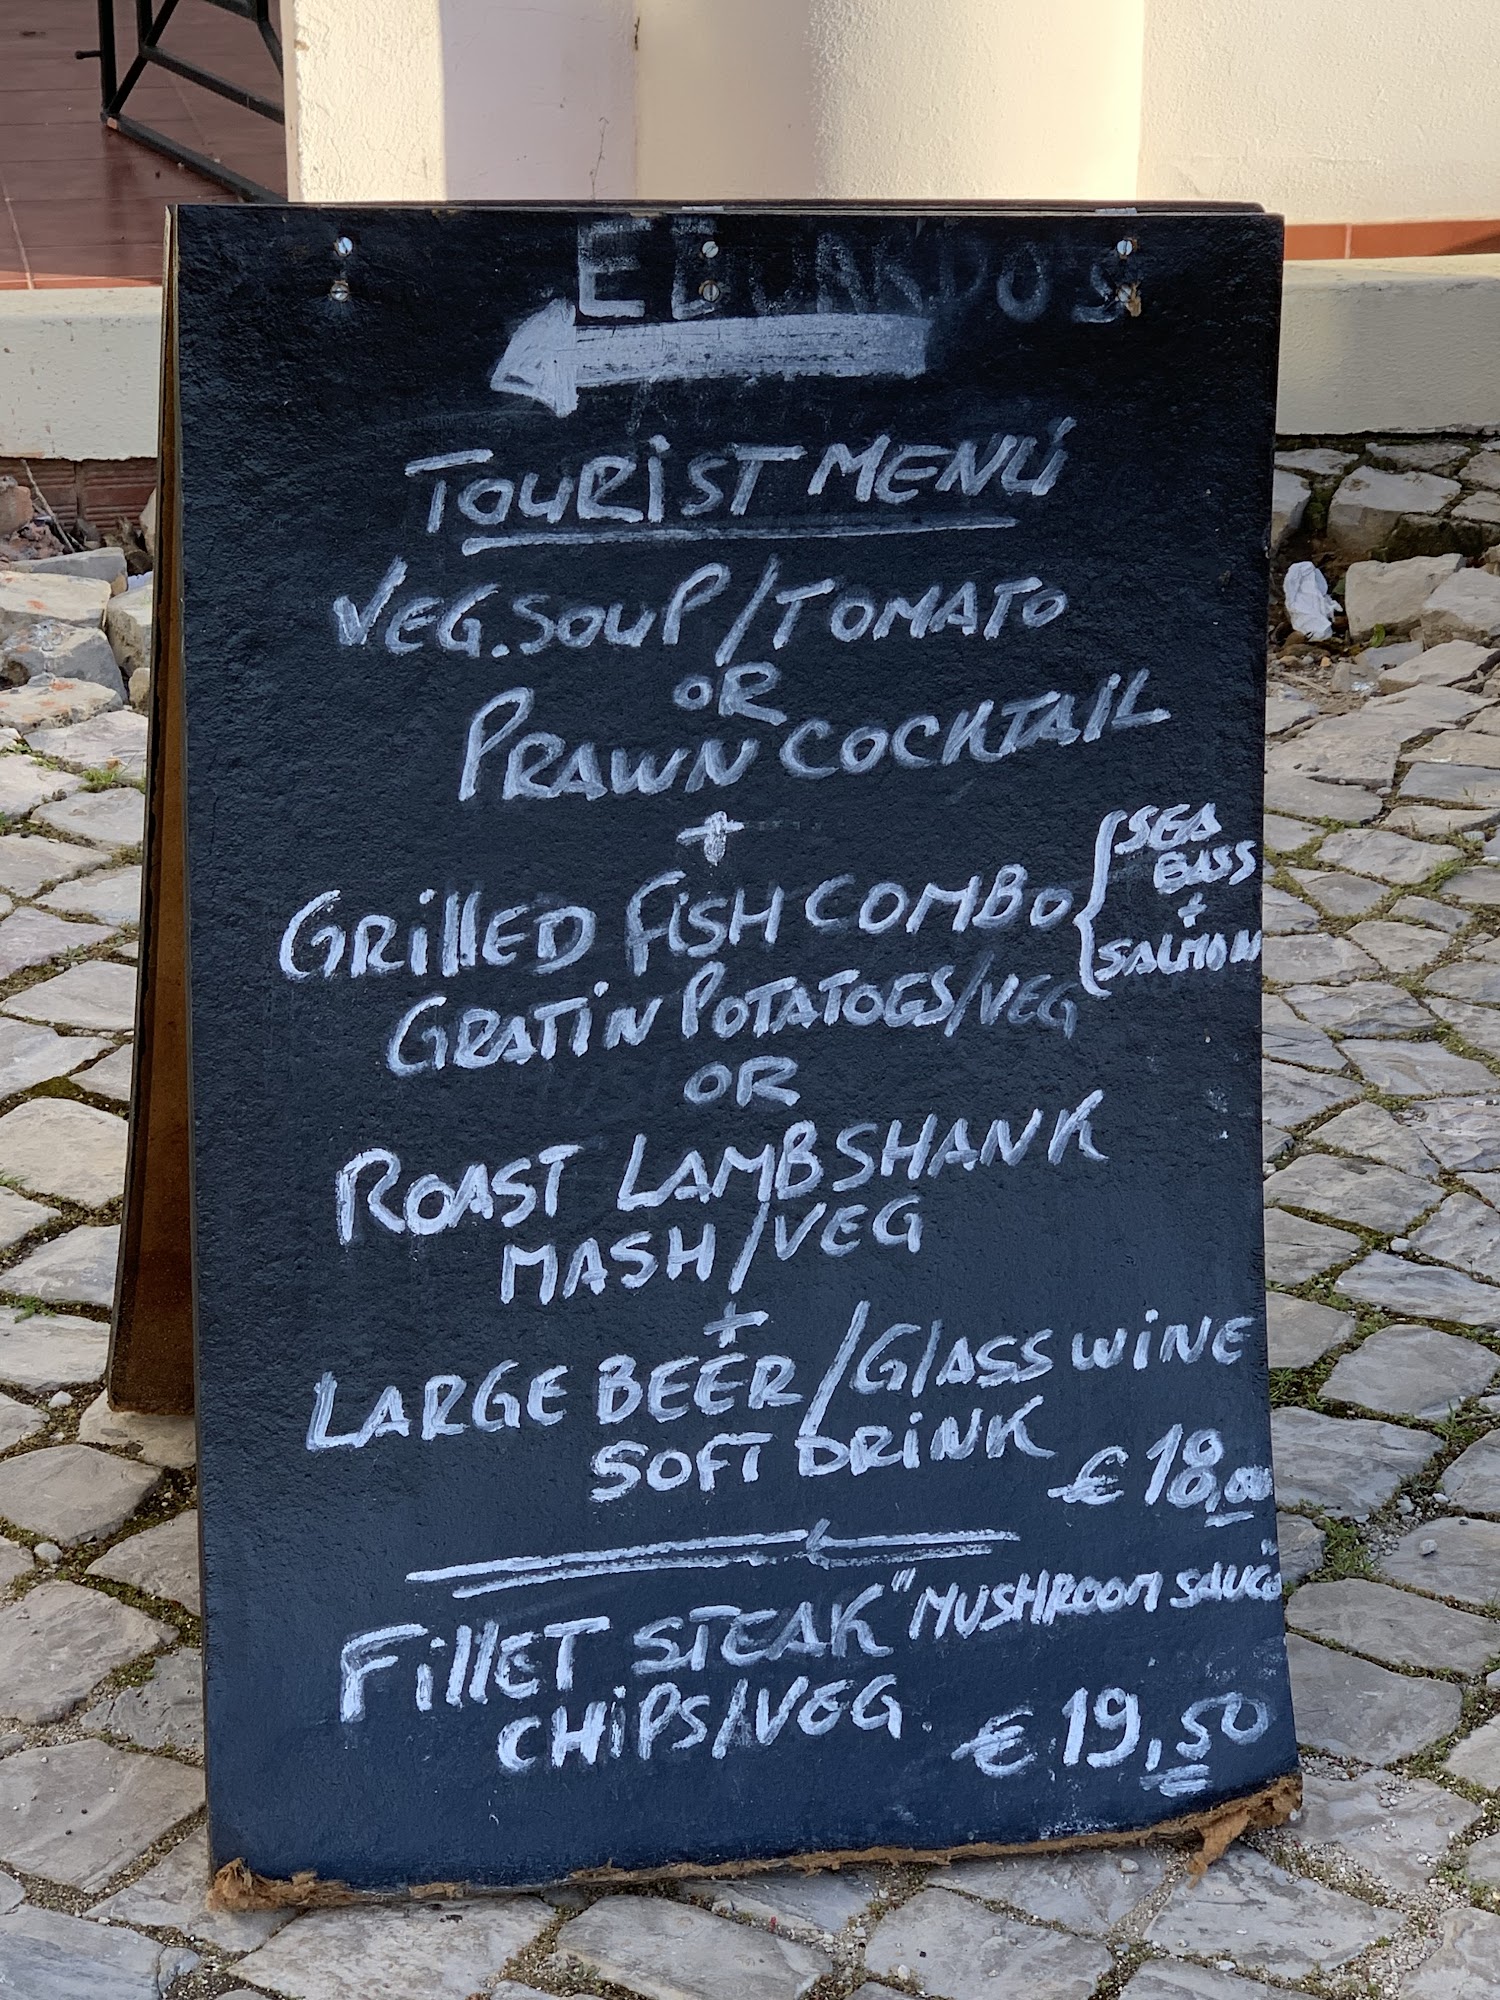 EDUARDO'S
TOURIST MENÚ
VEG. SOUP/TOMATO
OR
PRAWN COCKTAIL
+
GRILLED FISH COMBO { SEA
BASS
+
SALMON
GRATIN POTATOES/VEG
OR
ROAST LAMBSHANK
MASH/VEG
+
LARGE BEER/GLASS WINE
SOFT DRINK
€ 18,00
FILLET STEAK "MUSHROOM SAUCE"
CHIPS/VEG.
€ 19,50